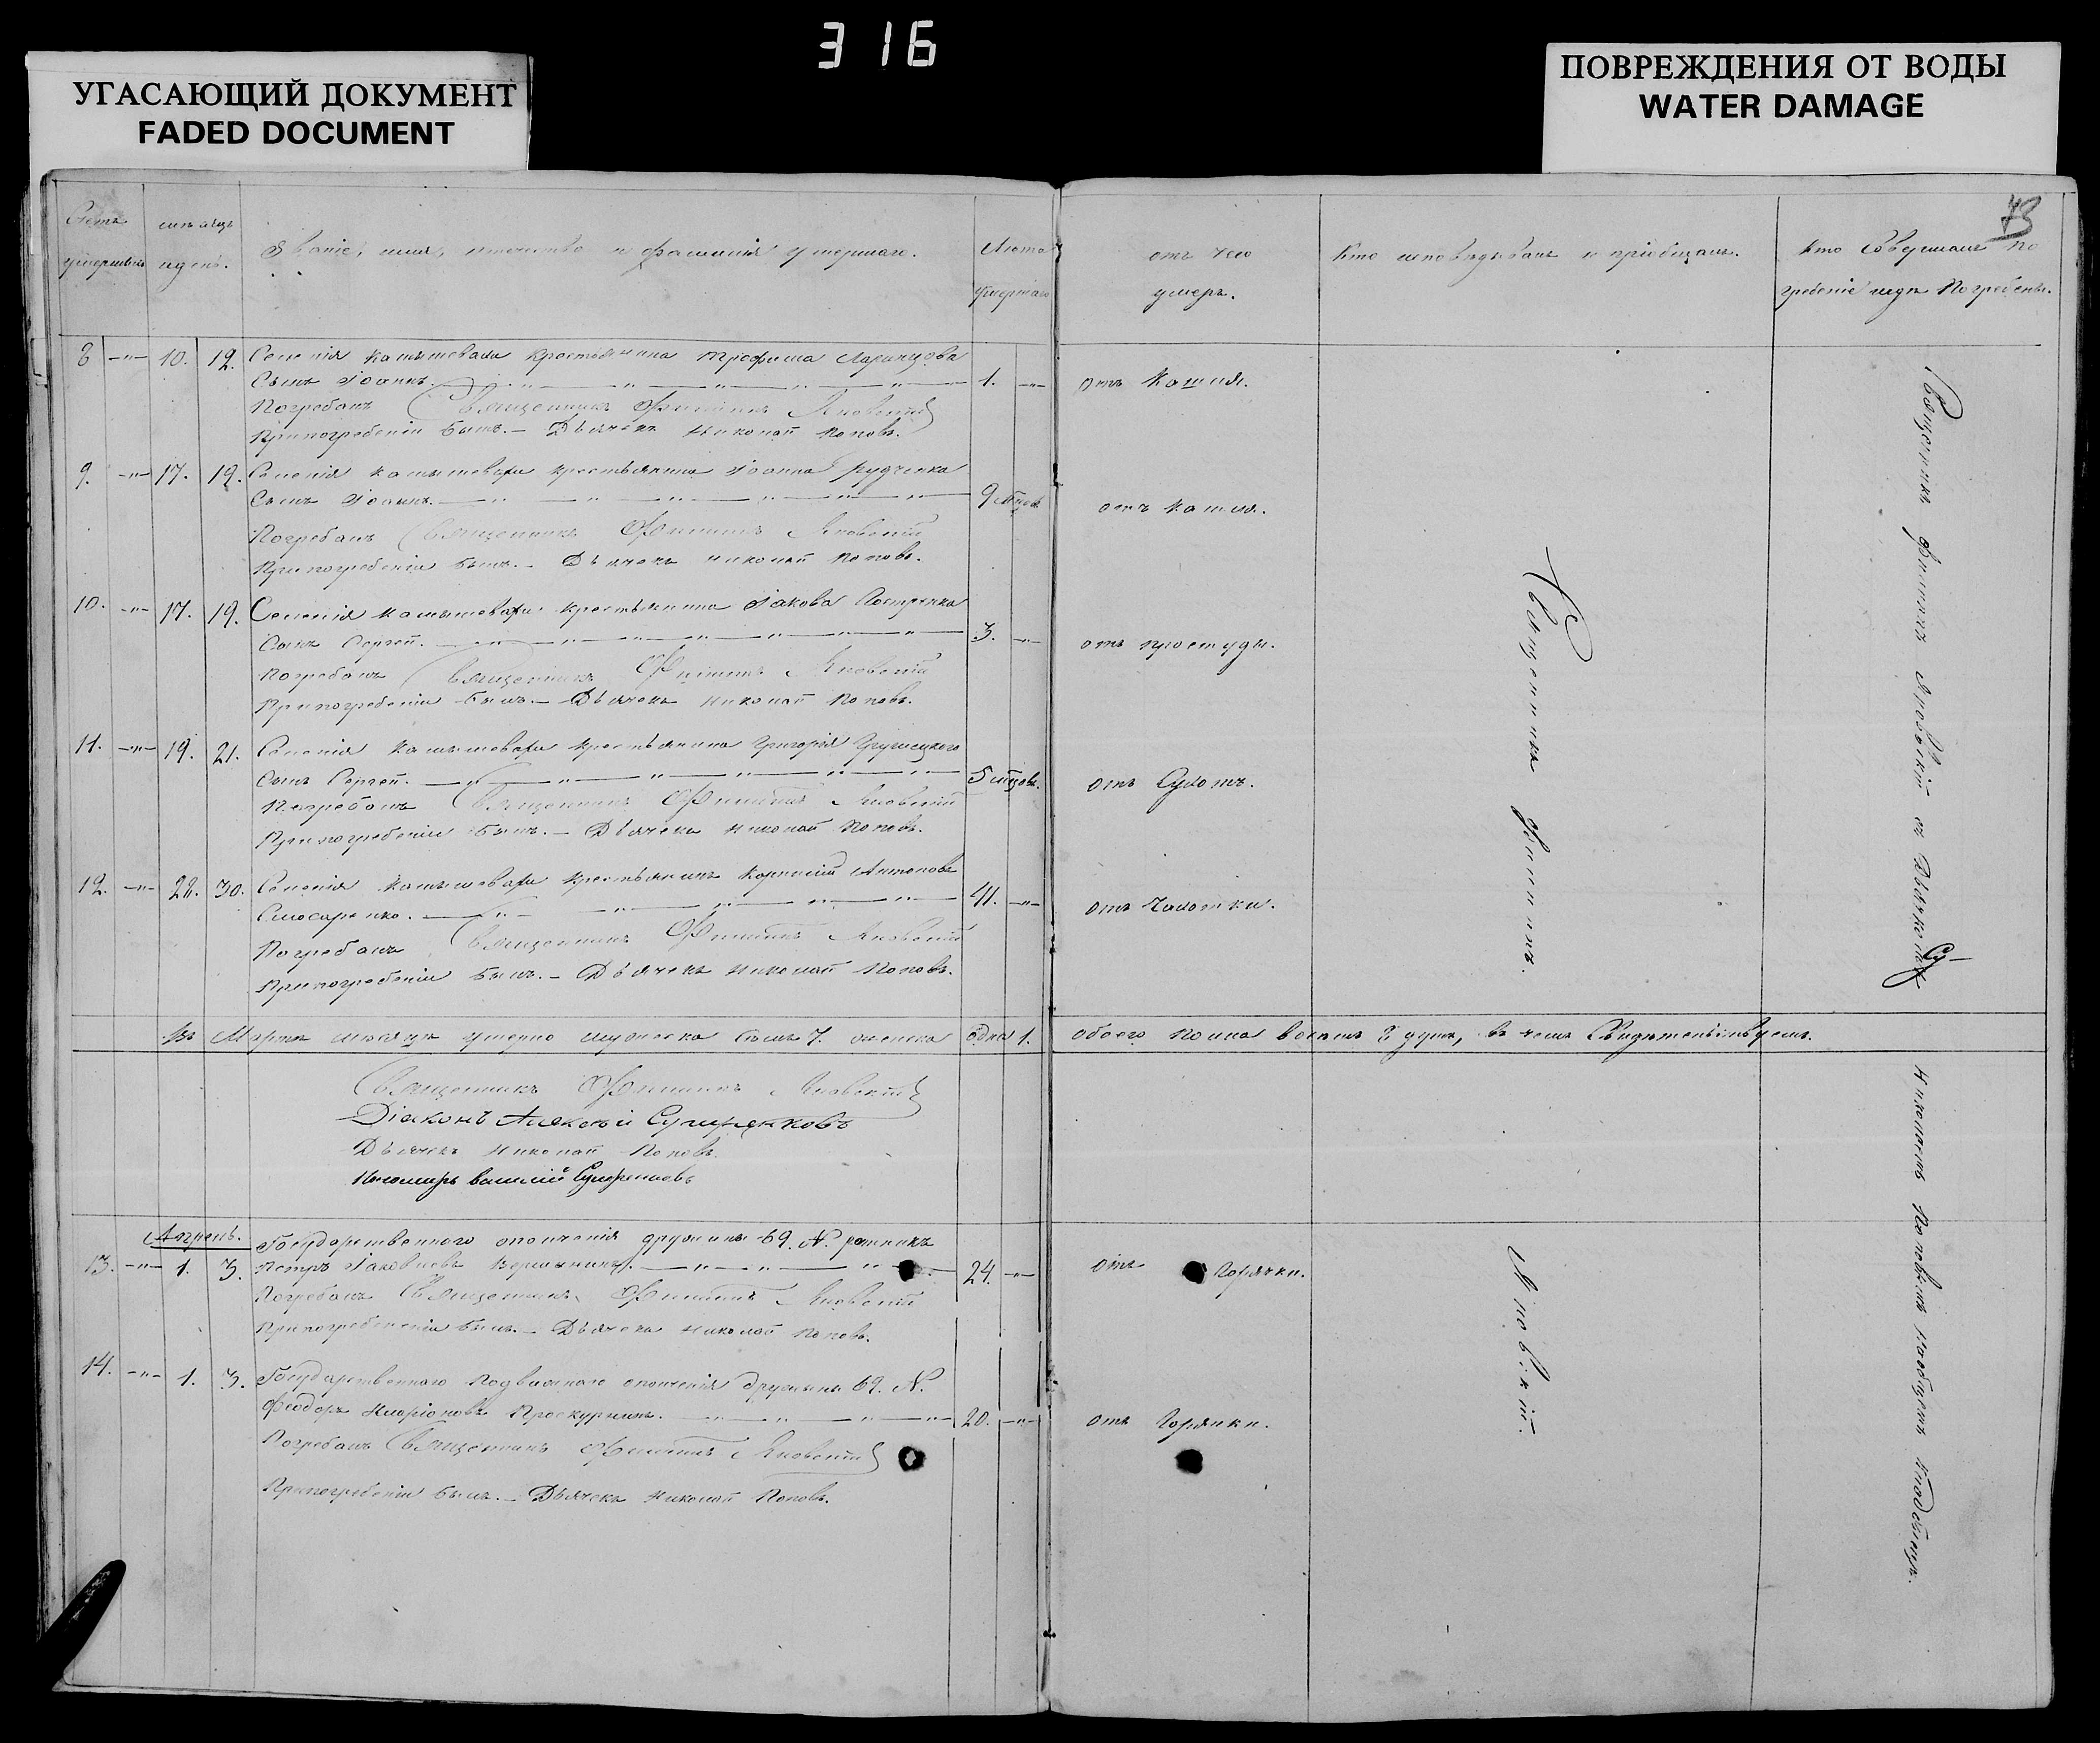 316
УГАСАЮЩИЙ ДОКУМЕНТ
FADED DOCUMENT
ПОВРЕЖДЕНИЯ ОТ ВОДЫ
WATER DAMAGE
73
Счетъ умершихъ
мѣсяцъ и день.
Званіе, имя, отчество и фамилія умершаго.
Лѣта умершаго
отъ чего умеръ.
Кто исповѣдывалъ и пріобщалъ.
Кто совершалъ погребеніе и гдѣ погребены.
8 —"— 10. 12. Селенія Камышевахи крестьянина Трофима
Сынъ Іоаннъ. 1. —"— отъ кашля.
Погребалъ Священникъ Филиппъ Яновскій
При погребеніи былъ. — Дьячекъ Николай Поповъ.
9. —"— 17. 19. Селенія Камышевахи крестьянина Іоанна Рудченка
Сынъ Іоаннъ. 9 мѣсяцов. отъ кашля.
Погребалъ Священникъ Филиппъ Яновскій
При погребеніи былъ. — Дьячекъ Николай Поповъ.
10. —"— 17. 19. Селенія Камышевахи крестьянина Іакова
Сынъ Сергей. 3. —"— отъ простуды.
Погребалъ Священникъ Филиппъ Яновскій
При погребеніи былъ. — Дьячекъ Николай Поповъ.
11. —"— 19. 21. Селенія Камышевахи крестьянина Григорія
Сынъ Сергей. 5 мѣсцов. отъ Сухотъ.
Погребалъ Священникъ Филиппъ Яновскій
При погребеніи былъ. — Дьячекъ Николай Поповъ.
12. —"— 28. 30. Селенія Камышевахи крестьянинъ Корнилій Антоновъ
Слюсаренко. 41. —"— отъ Чахотки.
Погребалъ Священникъ Филиппъ Яновскій
При погребеніи былъ. — Дьячекъ Николай Поповъ.
Въ Мартѣ мѣсяцѣ умерло мужеска семь 7. женска одна 1. обоего пола восемь 8 душъ, въ чемъ Свидѣтельствуемъ.
Священникъ Филиппъ Яновскій
Діаконъ Алексѣй
Дьячекъ Николай Поповъ.
Пономарь Василий
Апрель.
13. —"— 1. 3. Государственного ополченія дружины 69. N. ратникъ
Петръ Іаковлевъ 24. —"— отъ Горячки.
Погребалъ Священникъ Филиппъ Яновскій
При погребеніи былъ. — Дьячекъ Николай Поповъ.
14. —"— 1. 3. Государственного подвижнаго ополченія Дружины 69. N.
Феодоръ Иларіоновъ Проскурнинъ. 20. —"— отъ Горячки.
Погребалъ Священникъ Филиппъ Яновскій
При погребеніи былъ. — Дьячекъ Николай Поповъ.
Священникъ Филиппъ
Яновскій.
Священникъ Филиппъ Яновскій съ Дьячкомъ
Николаемъ Поповымъ на общемъ кладбищѣ.